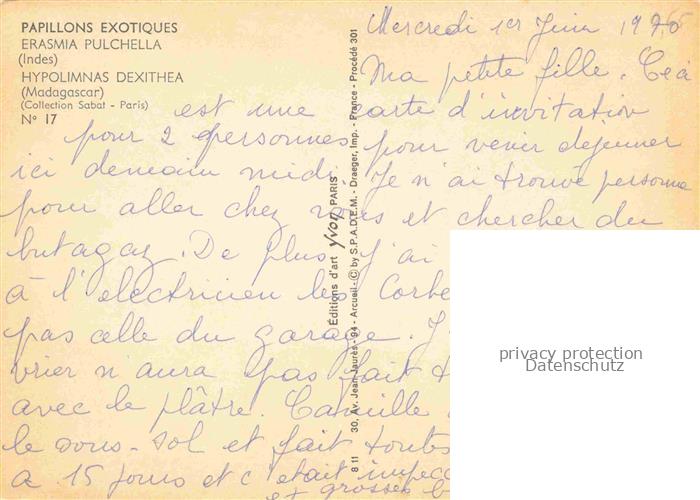 PAPILLONS EXOTIQUES
ERASMIA PULCHELLA
(Indes)
HYPOLIMNAS DEXITHEA
(Madagascar)
(Collection Sabat - Paris)
N° 17
Mercredi 1er Juin 19
Ma petite fille. Ceci
est une carte d'invitation
pour 2 personnes pour venir déjeuner
ici demain midi. Je n'ai trouvé personne
pour aller chez vous et chercher du
butagaz. De plus j'ai
à l'électricien les
pas celle du garage. J
vrier n'aura pas fait
avec le plâtre. Camille
le sous-sol et fait toutes
a 15 jours et c'était impecc
et grosses b
Éditions d'art yvon PARIS
8 11 30, Av. Jean-Jaurès - 94 - Arcueil - © by S.P.A.D.E.M. - Draeger, Imp. - France - Procédé 301
privacy protection
Datenschutz